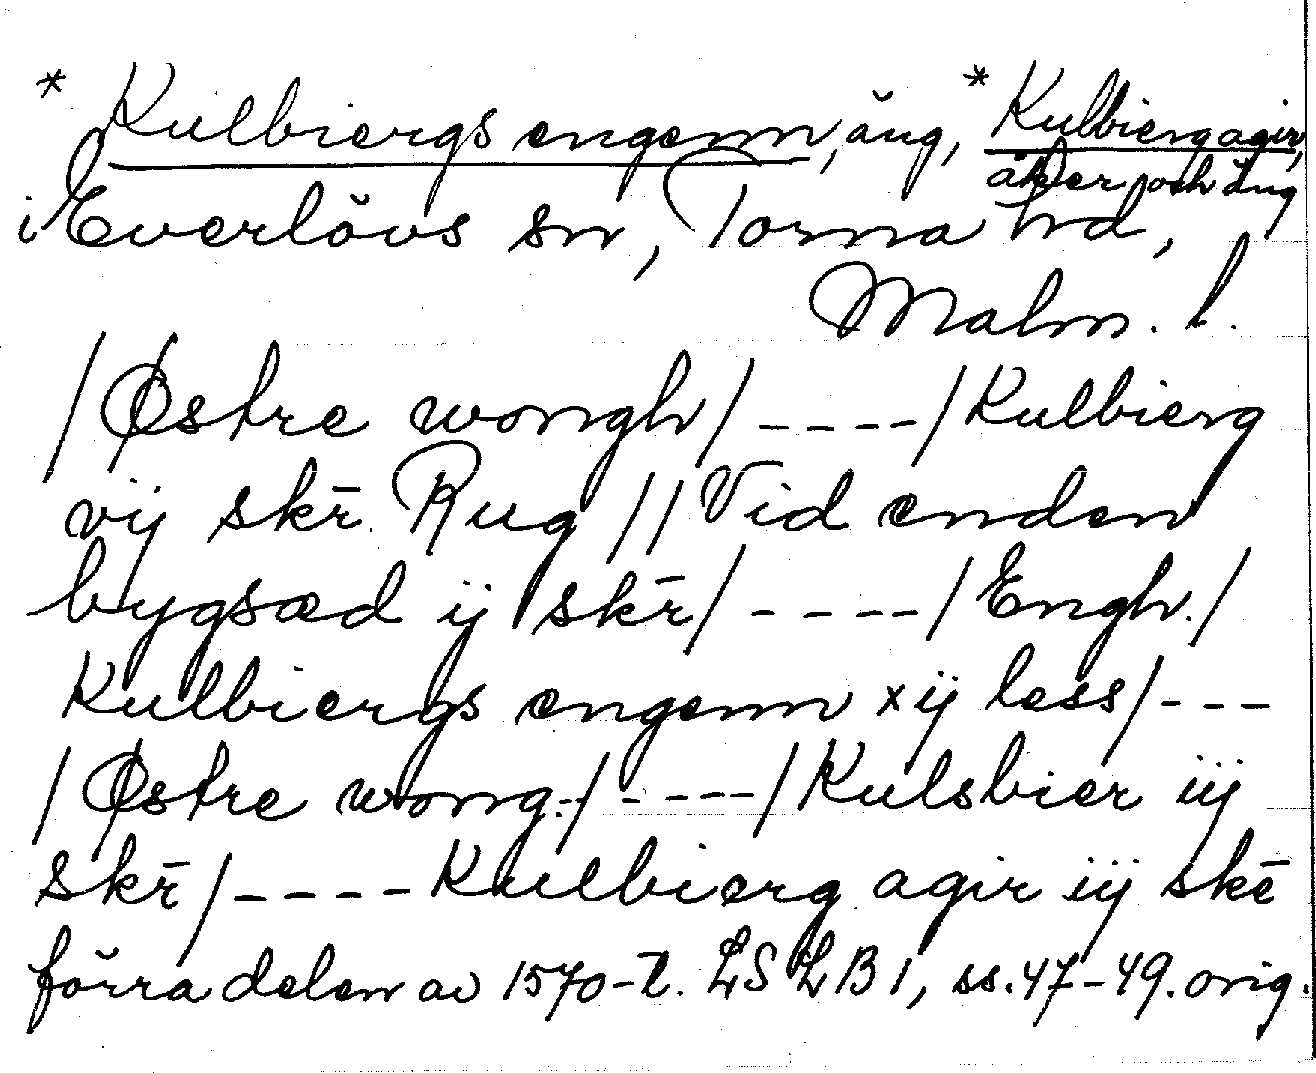 * Kulbiergs engenn, äng, * Kulbierg agir,
åker och äng
i Everlövs sn, Torna hd,
Malm. l.
/Østre wongh/ ----/Kulbierg
vij skr̄ Rug // Vid enden
bygsæd ij skr̄/ ----/Engh./
Kulbiergs engenn xij less/---
/Østre wong.-/ ----/Kulsbier iij
skr̄/---- Kulbierg agir iij skr̄
förra delen av 1570-t. LSLB 1, ss. 47-49. orig.